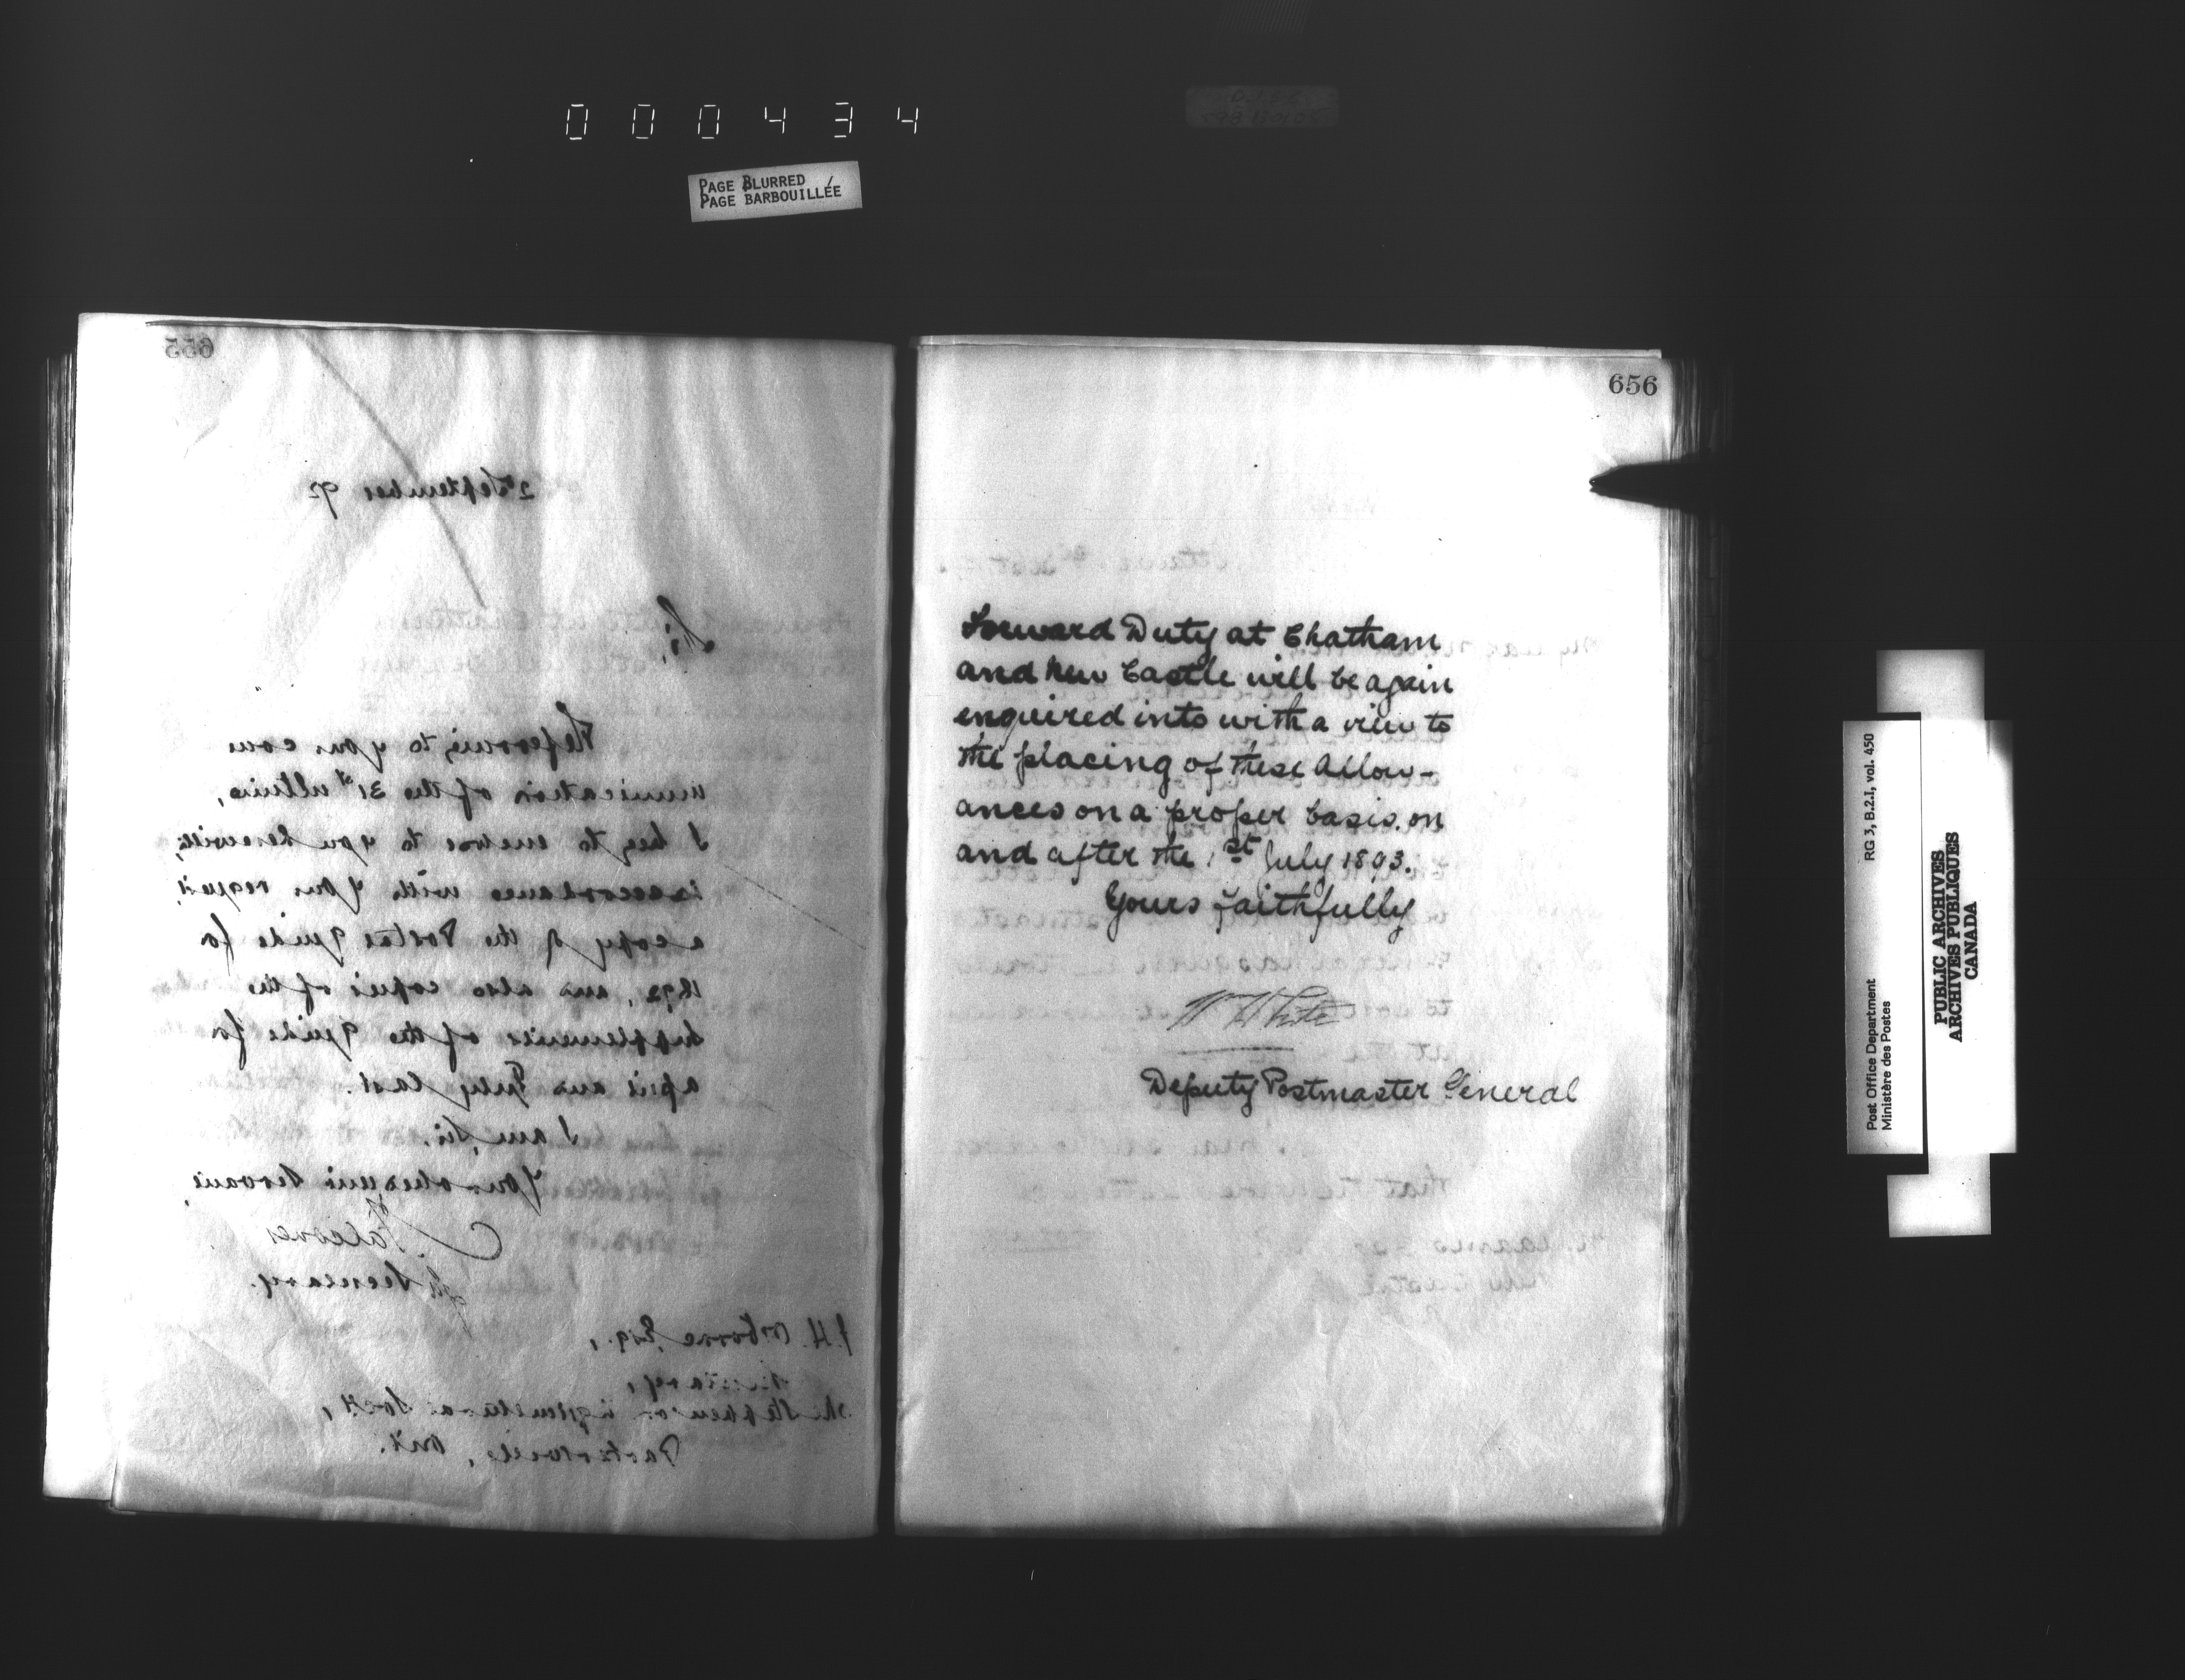 000434
PAGE BLURRED
PAGE BARBOUILLÉE
655
2nd September 92
Sir,
Referring to your com
munication of the 31st ultimo,
I beg to enclose to you herewith,
in accordance with your request,
a copy of the Postal Guide for
1892, and also copies of the
Supplements of the Guide for
April and July last.
I am, Sir,
Your obedient Servant,
Secretary.
J.H. Osborne Esq.,
Secretary,
Agricultural Soc'y,
Ont.
656
Forward Duty at Chatham
and New Castle will be again
enquired into with a view to
the placing of these Allow-
ances on a proper basis, on
and after the 1st July 1893.
Yours faithfully
W White
Deputy Postmaster General
Post Office Department
Ministère des Postes
RG 3, B.2.I, vol. 450
PUBLIC ARCHIVES
ARCHIVES PUBLIQUES
CANADA